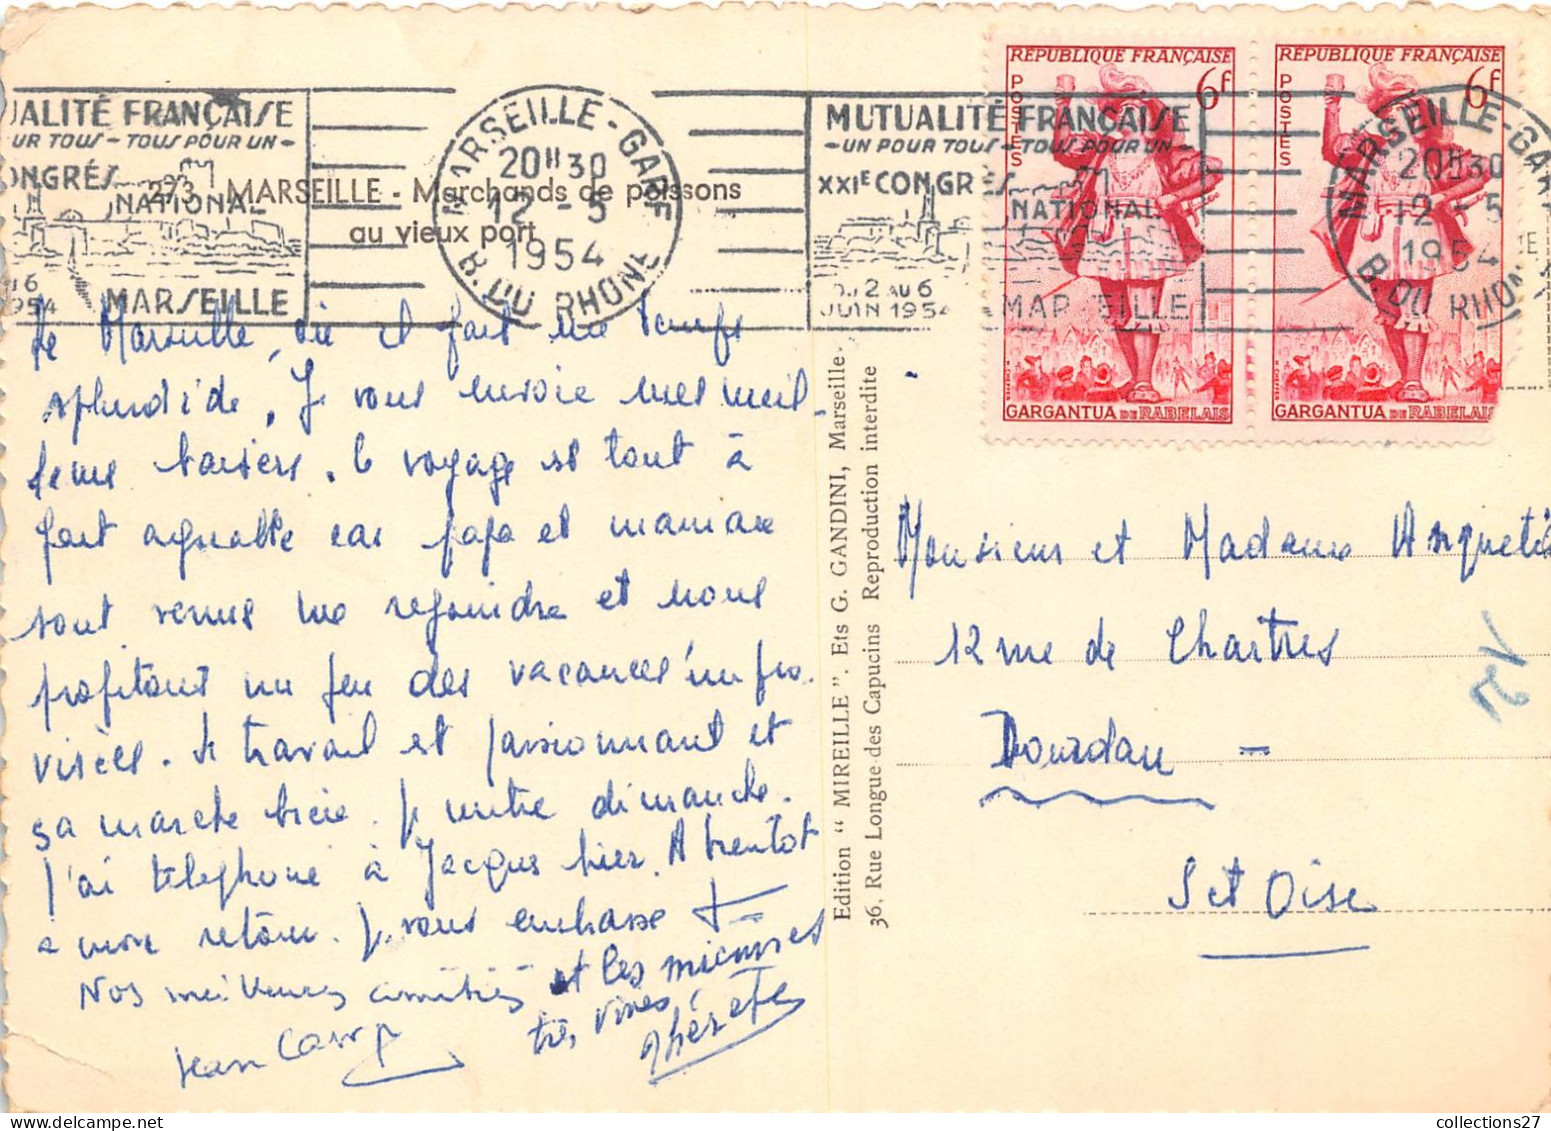 UALITÉ FRANÇAISE
UR TOUS - TOUS POUR UN -
ONGRÉS
NATIONAL
U 6
1954
MARSEILLE
MARSEILLE - GARE
20H30
12 - 5
1954
B. DU RHONE
273 MARSEILLE - Marchands de poissons
au vieux port
MUTUALITÉ FRANÇAISE
- UN POUR TOUS - TOUS POUR UN -
XXIE CONGRÉS
NATIONAL
DU 2 AU 6
JUIN 1954
MARSEILLE
MARSEILLE - GARE
20H30
12 - 5
1954
B. DU RHONE
RÉPUBLIQUE FRANÇAISE
POSTES
6F
GARGANTUA DE RABELAIS
RÉPUBLIQUE FRANÇAISE
POSTES
6F
GARGANTUA DE RABELAIS
De Marseille, où il fait un temps
splendide, Je vous envoie mes meil-
leurs baisers. Le voyage est tout à
fait agréable car papa et maman
sont venus me rejoindre et nous
profitons un peu des vacances impro-
visées. Le travail est passionnant et
ça marche bien. Je rentre dimanche.
J'ai téléphoné à Jacques hier. A bientôt
à mon retour. Je vous embrasse
Nos meilleures amitiés et les miennes
très vives
Jean
Edition “ MIREILLE ”. Ets G. GANDINI, Marseille
36, Rue Longue-des Capucins Reproduction interdite
Monsieur et Madame Anquetil
12 rue de Chartres
Dourdan -
S et Oise
collections27